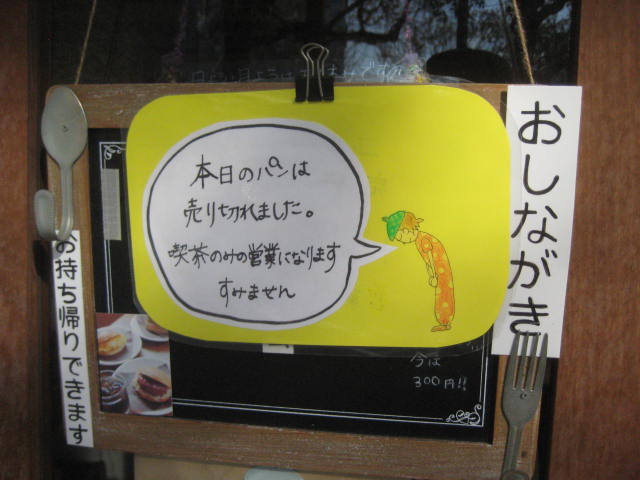 本日のパンは
売り切れました。
喫茶のみの営業になります
すみません
おしながき
お持ち帰りできます
今は
300円!!